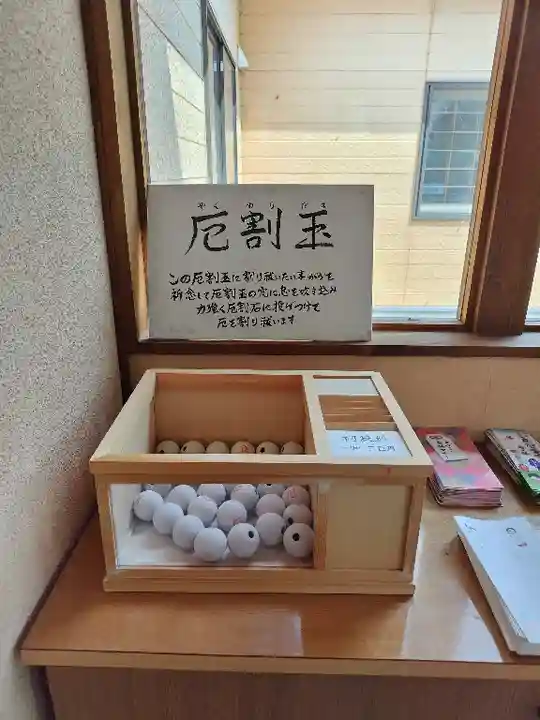 やくわりだま
厄割玉
この厄割玉に割り祓いたい事がらを
祈念して厄割玉の穴に息を吹き込み
力強く厄割石に投げつけて
厄を割り祓います
初穂料